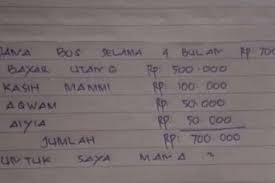 DANA BOS SELAMA 4 BULAN Rp. 700
BAYAR UTANG Rp. 500.000
KASIH MAMMI Rp. 100.000
AQWAM Rp. 50.000
AIYIA Rp. 50.000
JUMLAH Rp. 700.000
UNTUK SAYA MANA ?